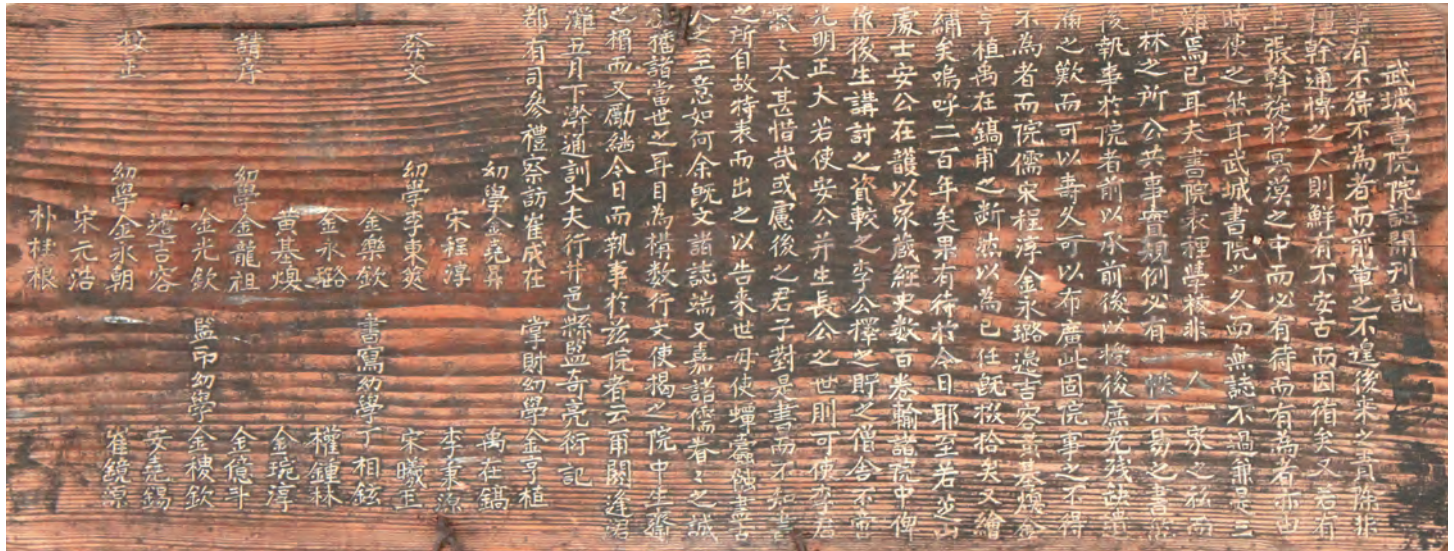 武城書院院誌開刊記
事有不得不為者而前輩之不遑後來之責除非
幹通博之人則鮮有不安古而因循矣又若有
主張斡旋於冥漠之中而必有待而有為者亦由
時使之然耳武城書院之久而無誌不過兼是三
難焉已耳夫書院表裡學校非一人一家之私而
士林之所公共事實規例必有一 不易之書然
後執事於院者前以承前後以授後庶免殘缺遺
漏之歎而可以壽久可以布廣此固院事之不得
不為者而院儒宋程淳金永璐邊吉容黃基煥金
亨植禹在鎬甫之断然以為己任旣掇拾矣又繪
繡矣嗚呼二百年矣果有待於今日耶至若步山
處士安公在護以家藏經史數百卷輸諸院中俾
作後生講討之資較之李公擇之貯之僧舍不啻
光明正大若使安公并生長公之世則可使李君
〻太甚惜哉或慮後之君子對是書而不知書
之所自故特表而出之以告来世毋使蟬蠹蝕盡古
人之至意如何余旣文諸誌端又嘉諸儒眷〻之誠
播諸當世之耳目為構数行文使揭之院中生齋
之楣而又勵継今日而執事於玆院者云甭閼逢涒
灘五月下澣通訓大夫行井邑縣監奇亮衍記
都有司參禮察訪崔成在 掌財幼學金亨植
幼學金堯 禹在鎬
宋程淳 李秉源
發文 幼學李東奭 宋曦玉
金樂欽 書寫幼學丁相鉉
金永璐 權鍾林
黃基煥 金琬淳
請序 幼學金龍祖 金億斗
金光欽 監印幼學金稷欽
邊吉容 安堯錫
校正 幼學金永朝 崔鏡源
宋元浩
朴桂根